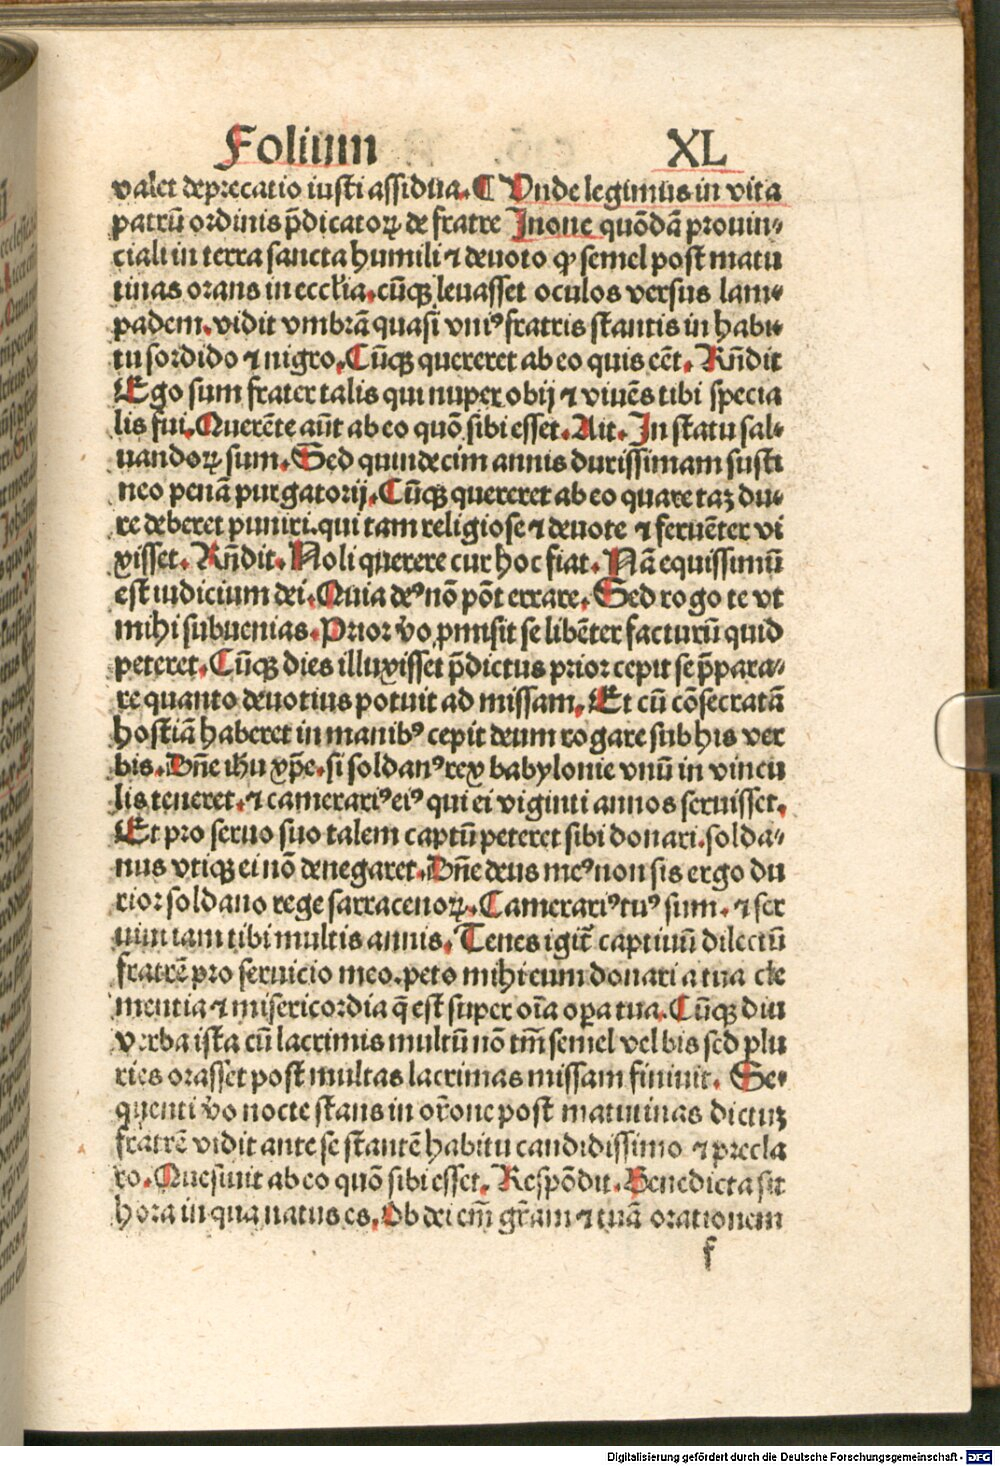 Folium XL
valet deprecatio iusti assidua. ¶ Unde legimus in vita
patrū ordinis p̄dicatoꝝ de fratre Inone quōdā prouin-
ciali in terra sancta humili ⁊ deuoto ꝙ semel post matu
tinas orans in eccl'ia. cūqꝫ leuasset oculos versus lam-
padem. vidit vmbrā quasi vniꝰ fratris stantis in habi-
tu sordido ⁊ nigro. Cūqꝫ quereret ab eo quis eēt. Rn̄dit
Ego sum frater talis qui nuper obij ⁊ viuēs tibi specia
lis fui. Querēte aūt ab eo quō sibi esset. Ait. In statu sal-
uandoꝝ sum. Sed quindecim annis durissimam susti
neo penā purgatorij. Cūqꝫ quereret ab eo quare taꝫ du-
re deberet puniri. qui tam religiose ⁊ deuote ⁊ feruēter vi
xisset. Rn̄dit. Noli querere cur hoc fiat. Nā equissimū
est iudicium dei. Quia deꝰ nō pōt errare. Sed rogo te vt
mihi subuenias. Prior v̄o ꝓmisit se libēter facturū quid
peteret. Cūqꝫ dies illuxisset p̄dictus prior cepit se p̄para-
re quanto deuotius potuit ad missam. Et cū cōsecratā
hostiā haberet in manibꝰ cepit deum rogare sub his ver
bis. Dn̄e ihu xp̄e. si soldanꝰ rex babylonie vnū in vincu
lis teneret. ⁊ camerariꝰ eiꝰ qui ei viginti annos seruisset.
Et pro seruo suo talem captū peteret sibi donari. solda-
nus vtiqꝫ ei nō denegaret. Dn̄e deus meꝰ non sis ergo du
rior soldano rege sarracenoꝝ. Camerariꝰ tuꝰ sum. ⁊ ser
uiui iam tibi multis annis. Tenes igit̄ captiuū dilectū
fratrē pro seruicio meo. peto mihi eum donari a tua cle
mentia ⁊ misericordia q̄ est super oīa oꝑa tua. Cūqꝫ diu
verba ista cū lacrimis multū nō tm̄ semel vel bis sed plu
ries orasset post multas lacrimas missam finiuit. Se-
quenti v̄o nocte stans in or̄one post matutinas dictuꝫ
fratrē vidit ante se stantē habitu candidissimo ⁊ precla
ro. Quesiuit ab eo quō sibi esset. Respōdit. Benedicta sit
hora in qua natus es. Ob dei em̄ gr̄am ⁊ tuā orationem
f
Digitalisierung gefördert durch die Deutsche Forschungsgemeinschaft - DFG